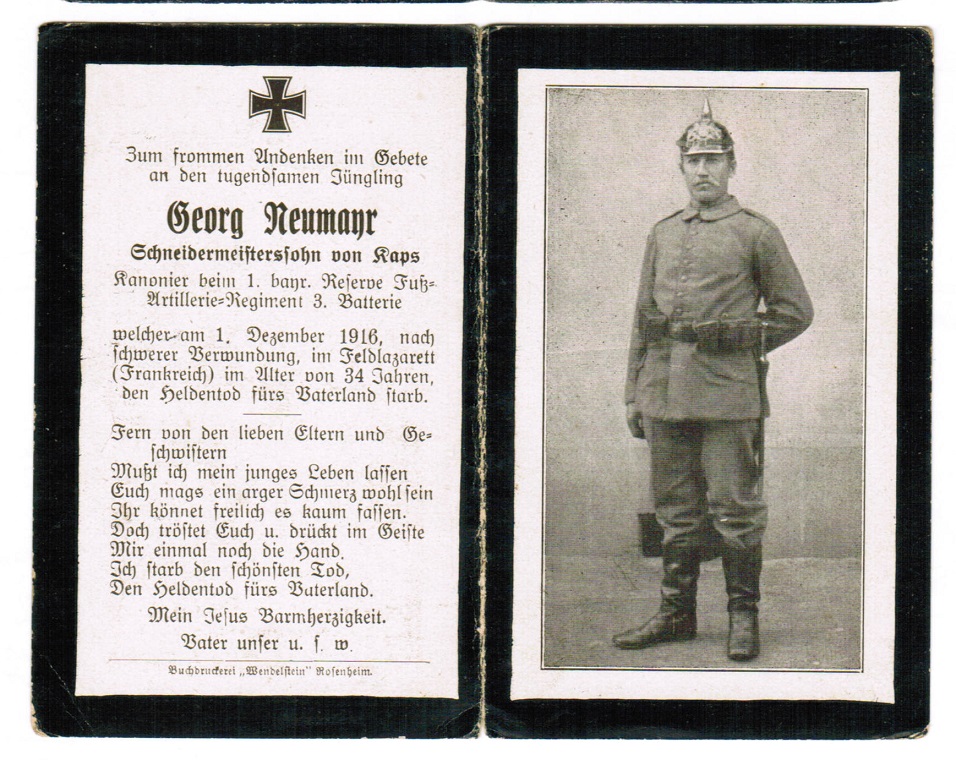 Zum frommen Andenken im Gebete
an den tugendsamen Jüngling
Georg Neumayr
Schneidermeisterssohn von Kaps
Kanonier beim 1. bayr. Reserve Fuß-
Artillerie-Regiment 3. Batterie
welcher am 1. Dezember 1916, nach
schwerer Verwundung, im Feldlazarett
(Frankreich) im Alter von 34 Jahren,
den Heldentod fürs Vaterland starb.
Fern von den lieben Eltern und Ge-
schwistern
Mußt ich mein junges Leben lassen
Euch mags ein arger Schmerz wohl sein
Ihr könnet freilich es kaum fassen.
Doch tröstet Euch u. drückt im Geiste
Mir einmal noch die Hand.
Ich starb den schönsten Tod,
Den Heldentod fürs Vaterland.
Mein Jesus Barmherzigkeit.
Vater unser u. s. w.
Buchdruckerei „Wendelstein" Rosenheim.